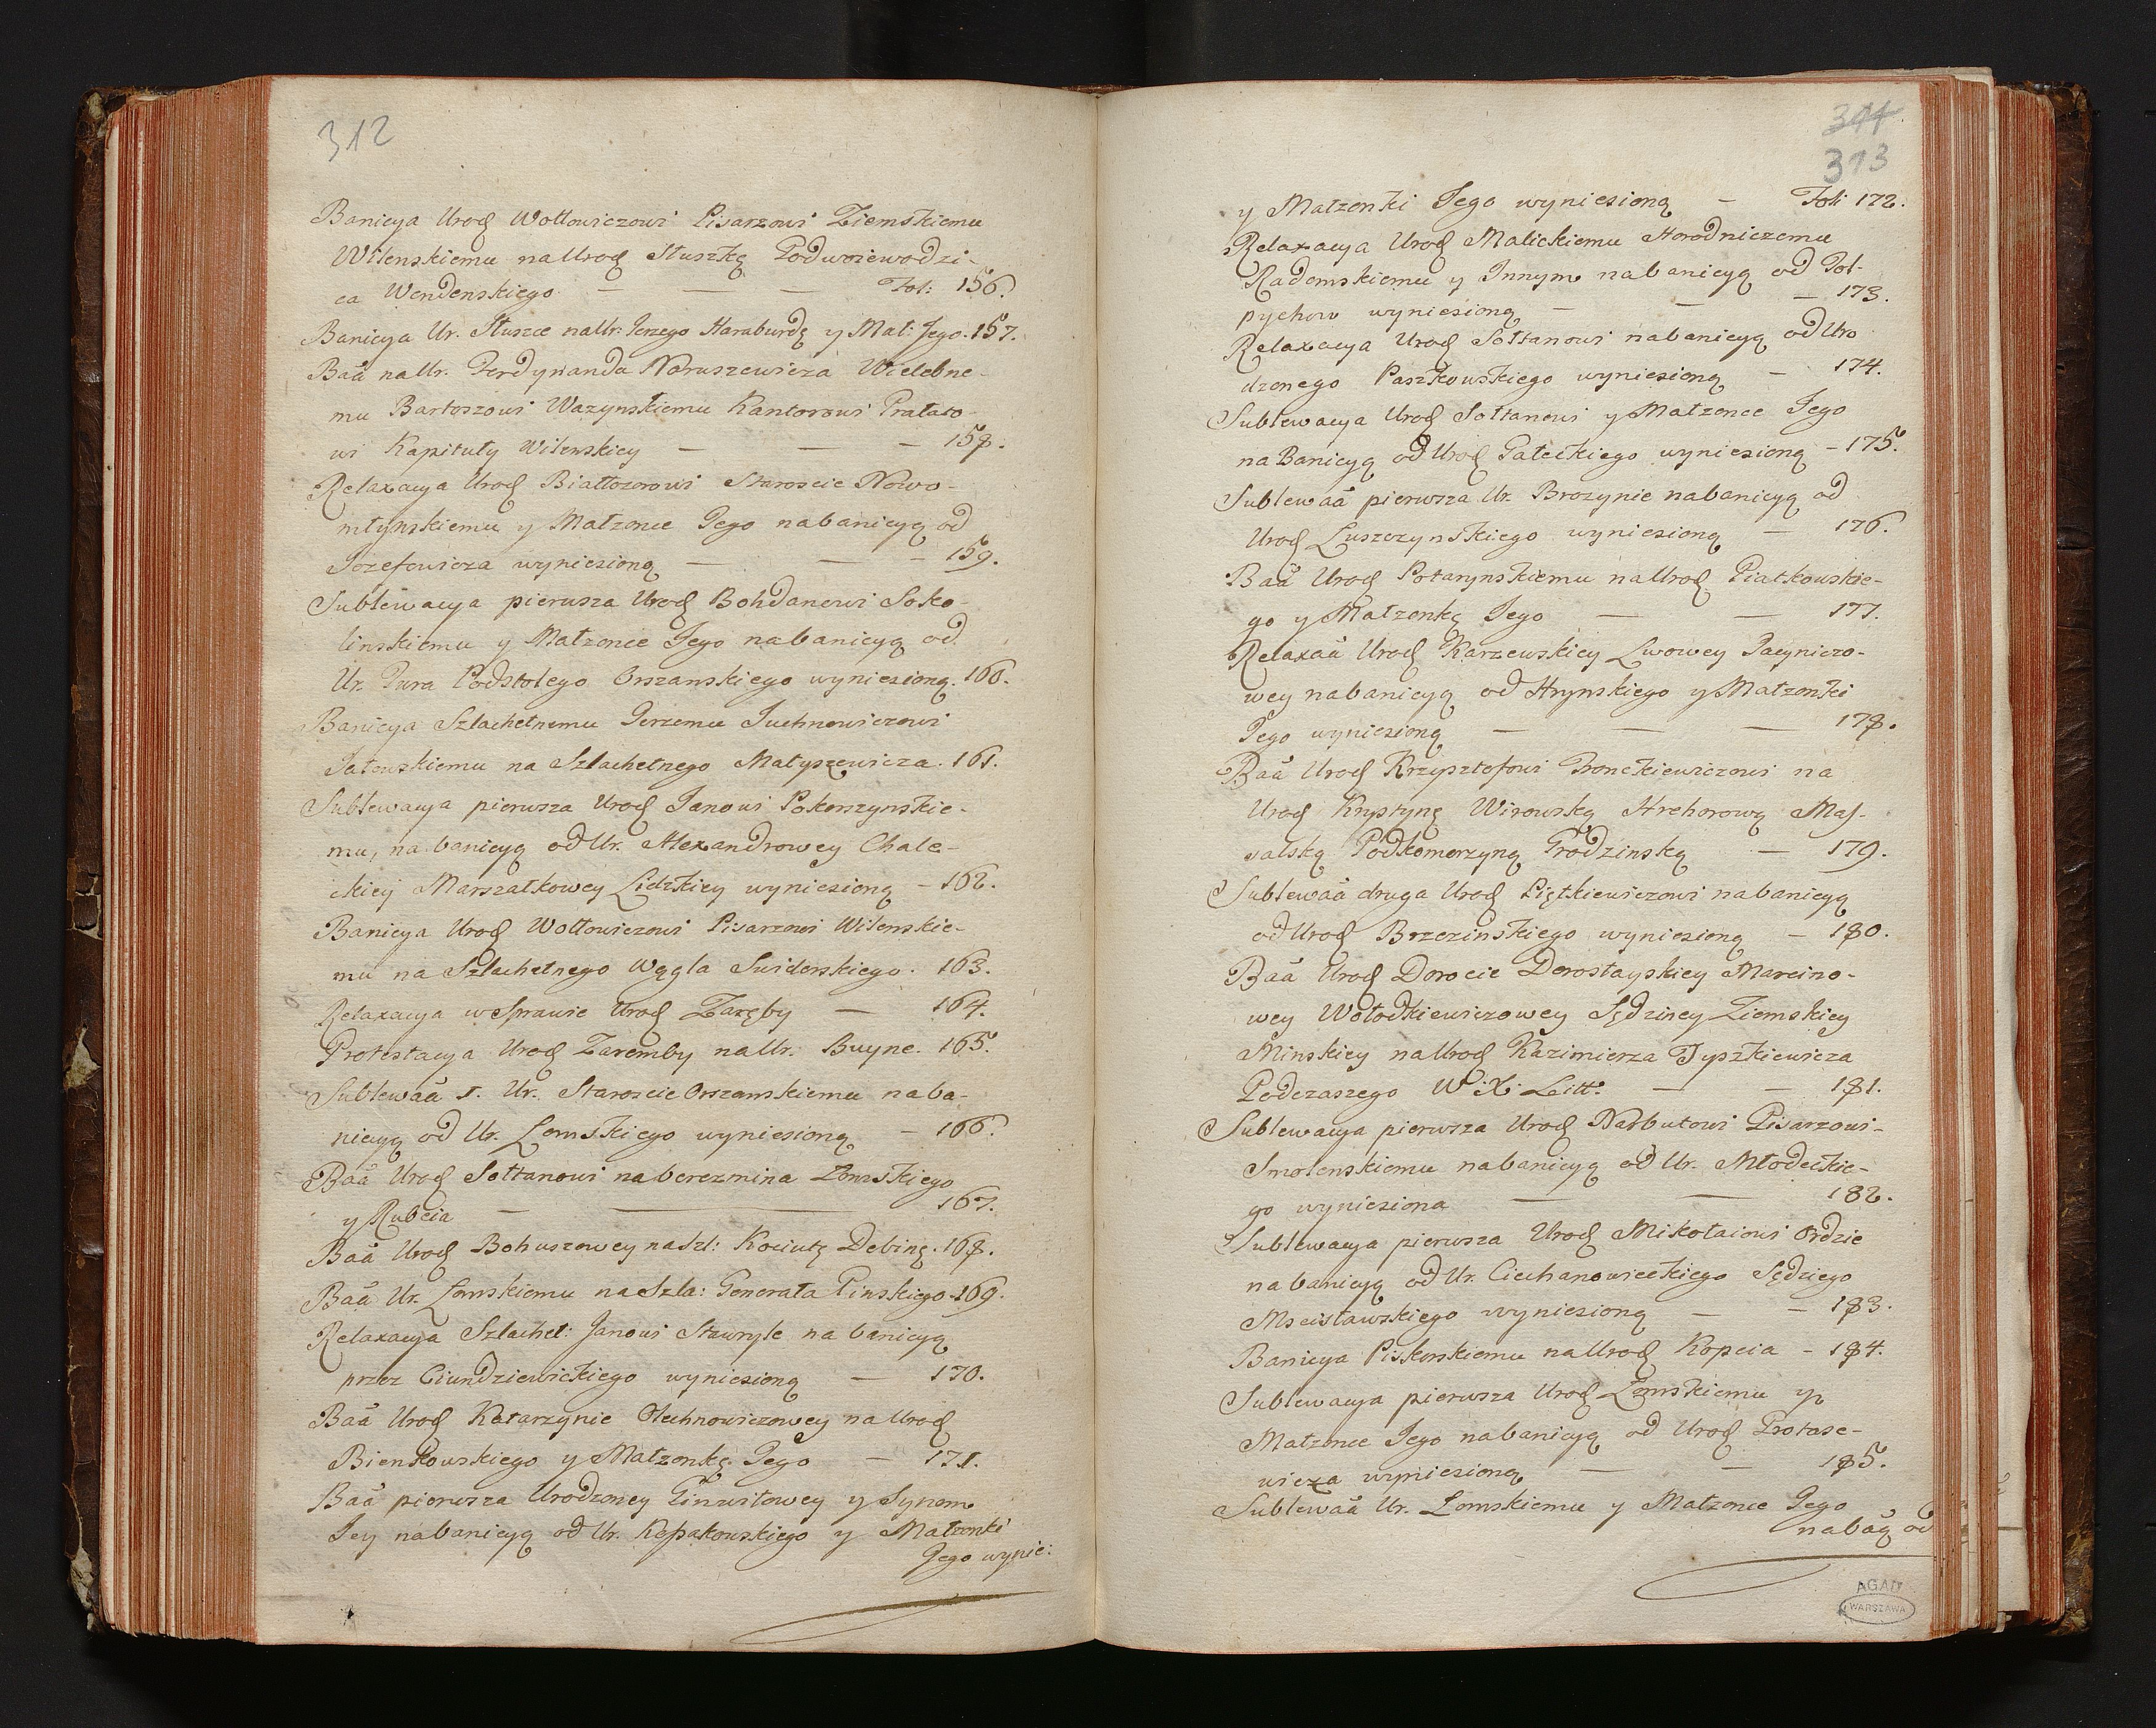 312
Banicya Urod Wołłowiczowi Pisarzowi Ziemskiemu
Wilenskiemu na Urod Słuszkę Podwoiewodzi-
ca Wendenskiego — — — Fol: 156.
Banicya Ur. Słuszce na Ur: Jerzego Haraburdę y Mał: Jego. 157.
Baã na Ur. Ferdynanda Naruszewicza Wielebne-
mu Bartoszowi Wazynskiemu Kantorowi Prałato-
wi Kapituły Wilenskiey — — — 158.
Relaxacya Urod Białłozorowi Staroscie Nowo-
młynskiemu y Małzonce Jego na banicyą od
Jozefowicza wyniesioną — — — 159.
Sublewacya pierwsza Urod Bohdanowi Soko-
linskiemu y Małzonce Jego na banicyą od
Ur. Pura Podstolego Orszanskiego wyniesioną. 160.
Banicya Szlachetnemu Jerzemu Juchnowiczowi
Jatowskiemu na Szlachetnego Matyszewicza. 161.
Sublewacya pierwsza Urod Janowi Pokorszynskie-
mu, na banicyą od Ur. Alexandrowey Chale-
ckiey Marszałkowey Lidzkiey wyniesioną — 162.
Banicya Urod Wołłowiczowi Pisarzowi Wilenskie-
mu na Szlachetnego Węgla Swiderskiego. 163.
Relaxacya w Sprawie Urod Zaręby — 164.
Protestacya Urod Zaremby na Ur. Buyne. 165.
Sublewaã 1. Ur. Staroscie Orszanskiemu na ba-
nicyą od Ur. Łomskiego wyniesioną — 166.
Baã Urod Sołtanowi na berezmina Łomskiego
y Rubcia — — 167.
Baã Urod Bohuszowey na Szl: Kociutę Debinę. 168.
Baã Ur. Łomskiemu na Szla: Generała Pinskiego. 169.
Relaxacya Szlachet: Janowi Stawryle na banicyą
przez Ciundziewickiego wyniesioną — 170.
Baã Urod Katarzynie Olechnowiczowey na Urod
Bienkowskiego y Małzonkę Jego — 171.
Baã pierwsza Urodzoney Ginwiłowey y Synom
Jey na banicyą od Ur. Kepakowskiego y Małzonki
Jego wynie:
311
313
y Małzonki Jego wyniesioną — Foli 172.
Relaxacya Urod Malickiemu Horodniczemu
Radomskiemu y Innym na banicyą od Pol-
pychow wyniesioną — — — 173.
Relaxacya Urod Sołtanowi na banicyą od Uro
dzonego Paszkowskiego wyniesioną — 174.
Sublewacya Urod Sołtanowi y Małzonce Jego
na Banicyą od Urod Gałeckiego wyniesioną — 175.
Sublewaã pierwsza Ur. Brozynie na banicyą od
Urod Łuszczynskiego wyniesioną — 176.
Baã Urod Potarynskiemu na Urod Piatkowskie-
go y Małzonkę Jego — — 177.
Relaxaã Urod Karzewskiey Lwowey Pacyniczo-
wey na banicyą od Hrynskiego y Małzonki
Jego wyniesioną — — — 178.
Baã Urod Krzysztofowi Bonckiewiczowi na
Urod Krystynę Wirowską Hrehorową Mas-
salską Podkomorzyną Grodzinską — 179.
Sublewaã druga Urod Piętkiewiczowi na banicyą
od Urod Brzezinskiego wyniesioną — 180.
Baã Urod Dorocie Dorostayskiey Marcino-
wey Wołodkiewiczowey Sędziney Ziemskiey
Minskiey na Urod Kazimierza Tyszkiewicza
Podczaszego W: X: Litt: — — 181.
Sublewacya pierwsza Urod Narbutowi Pisarzowi-
Smolenskiemu na banicyą od Ur. Młodeckie-
go wyniesiona — — 182.
Sublewacya pierwsza Urod Mikołaiowi Ordzie
na banicyą od Ur. Ciechanowieckiego Sędziego
Mscisławskiego wyniesioną — — 183.
Banicya Piskorskiemu na Urod Kopcia — 184.
Sublewacya pierwsza Urod Łomskiemu y
Małzonce Jego na banicyą od Urod Protase-
wicza wyniesioną — — 185.
Sublewaã Ur. Łomskiemu y Małzonce Jego
na baą od
AGAD
WARSZAWA